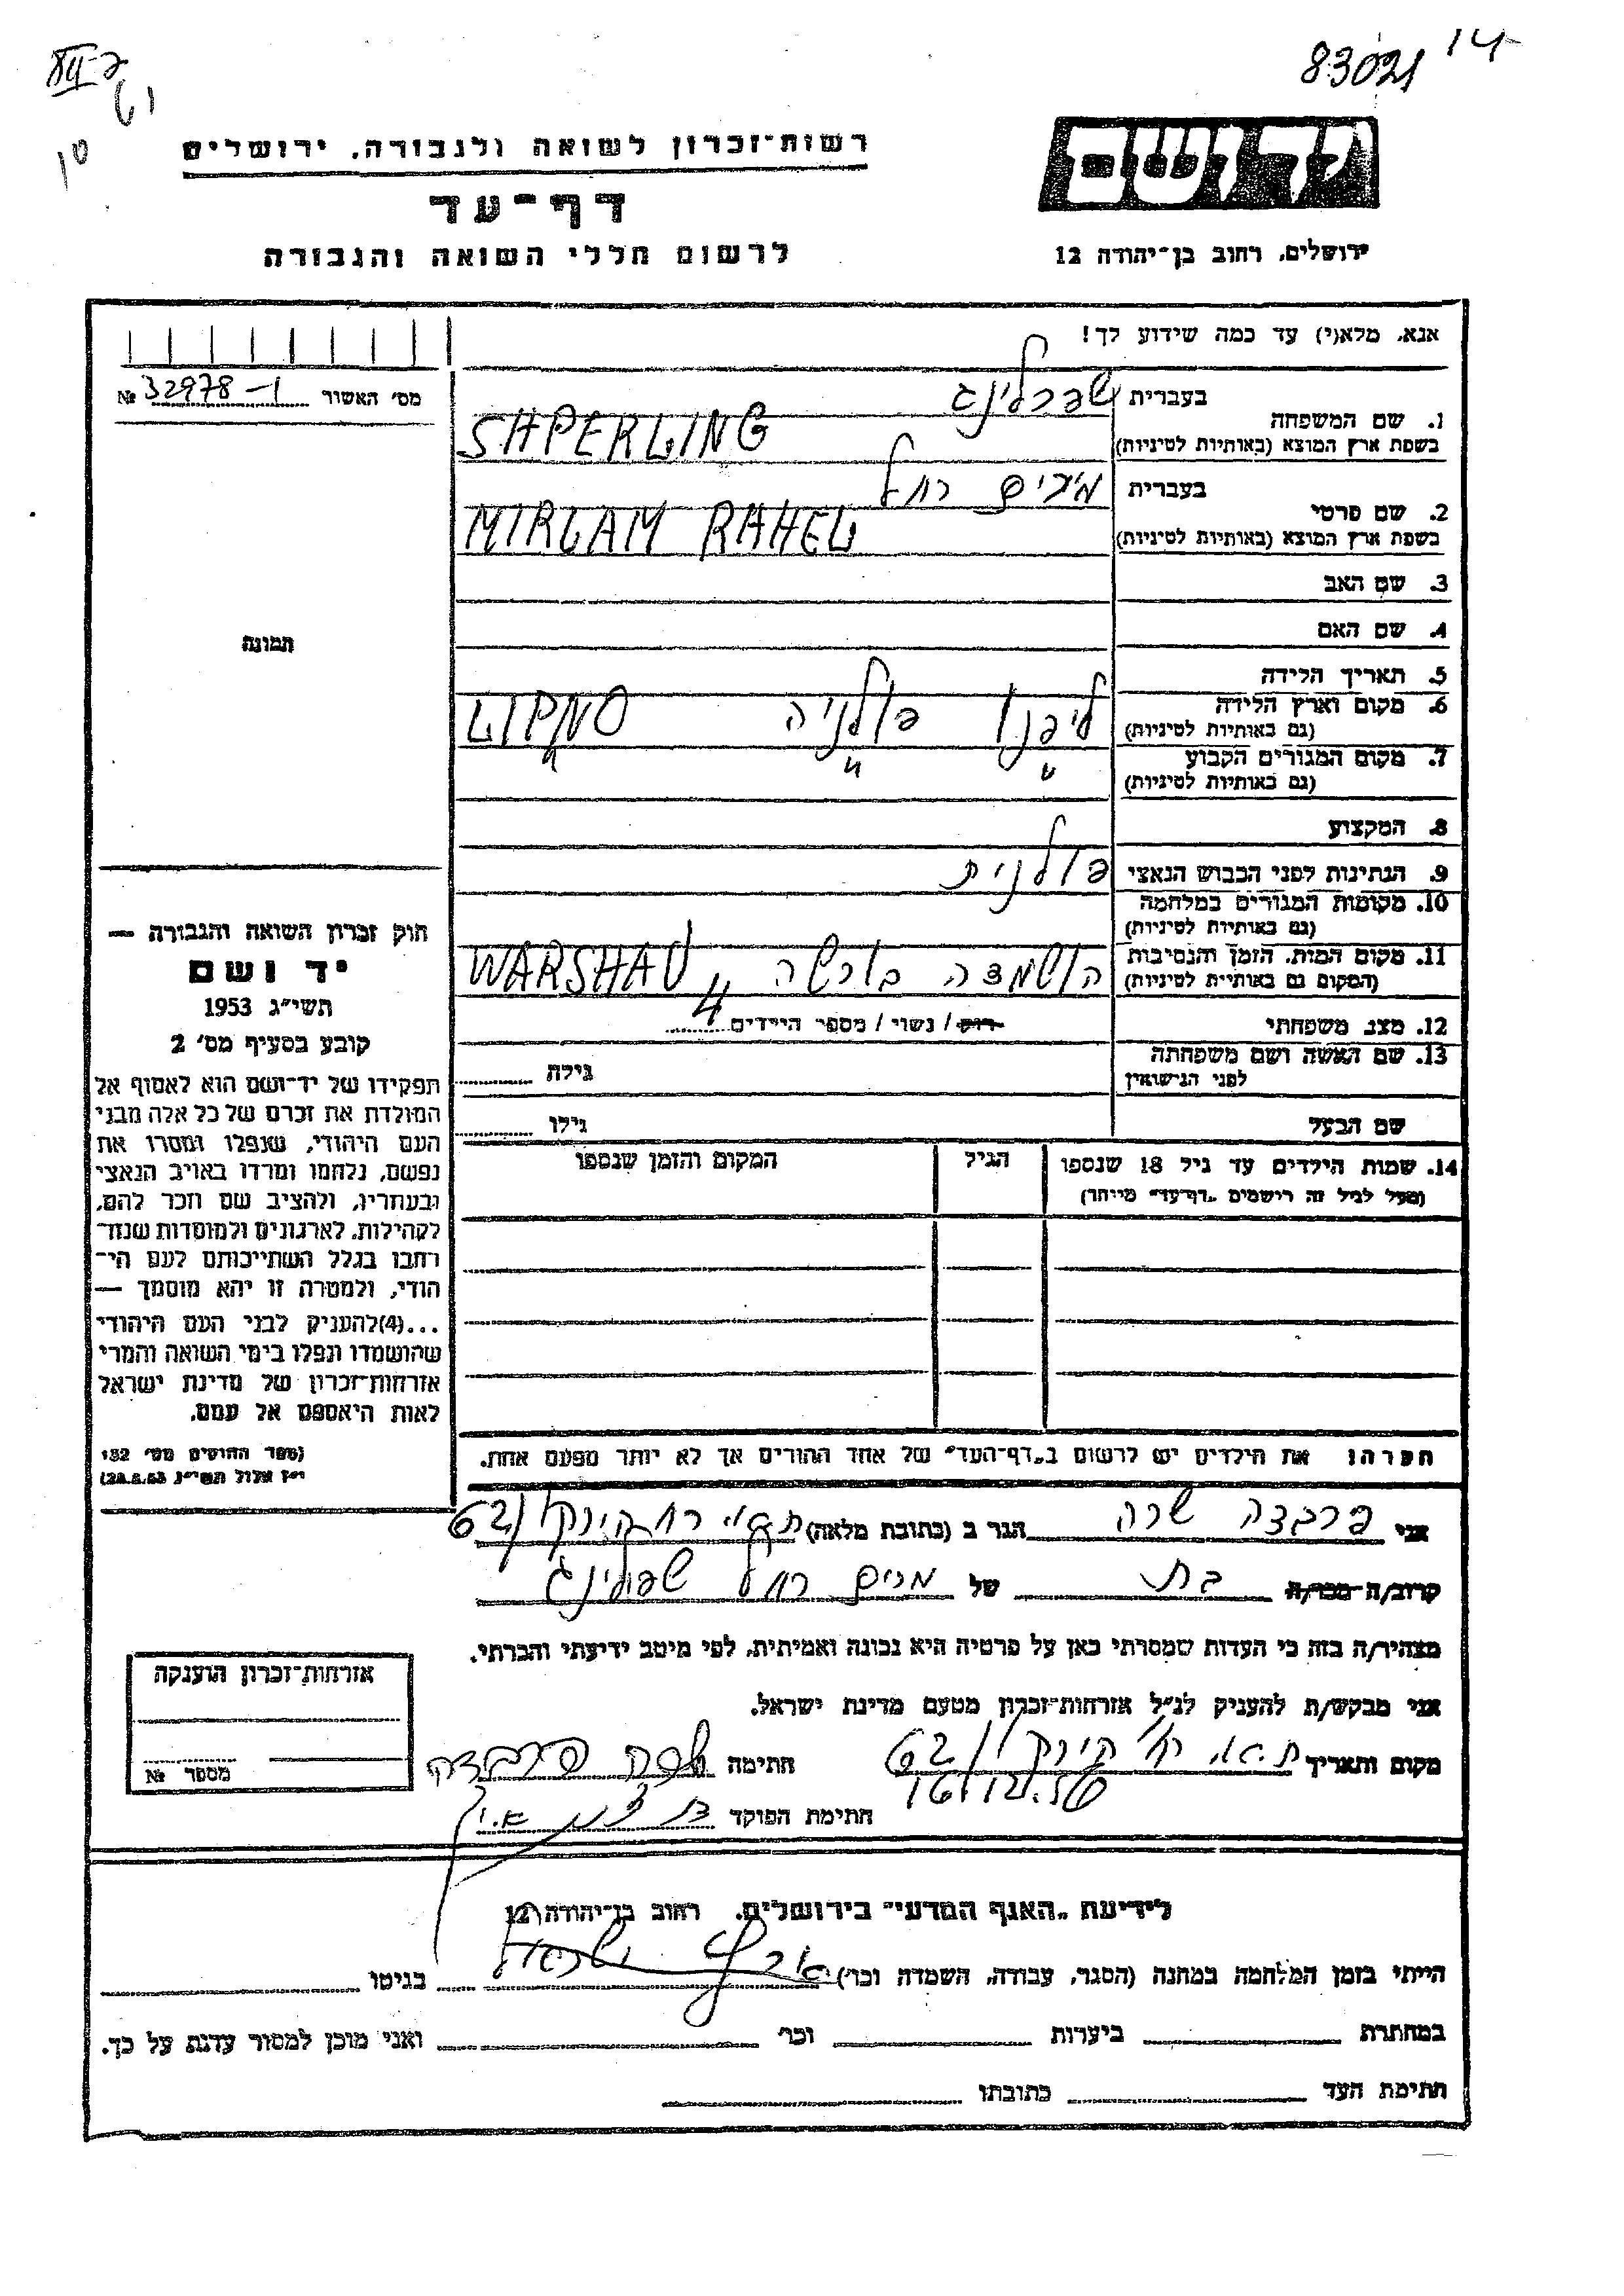 83021 14
VIII-2
רשות-זכרון לשואה ולגבורה, ירושלים
דף-עד
לרשום חללי השואה והגבורה
יד ושם
ירושלים, רחוב בן-יהודה 12
אנא, מלא(י) עד כמה שידוע לך!
מס׳ האשור № 32978-1
1. שם המשפחה בעברית שפרלינג
בשפת ארץ המוצא (באותיות לטיניות) SHPERLING
2. שם פרטי בעברית מירים רחל
בשפת ארץ המוצא (באותיות לטיניות) MIRIAM RAHEL
3. שם האב
4. שם האם
5. תאריך הלידה
6. מקום וארץ הלידה (גם באותיות לטיניות) ליפנו פולניה LIPNO
7. מקום המגורים הקבוע (גם באותיות לטיניות) " " "
8. המקצוע
9. הנתינות לפני הכבוש הנאצי פולנית
10. מקומות המגורים במלחמה (גם באותיות לטיניות)
11. מקום המות, הזמן והנסיבות (המקום גם באותיות לטיניות) הושמדה בורשה WARSHAU
12. מצב משפחתי רווק / נשוי / מספר הילדים 4
13. שם האשה ושם משפחתה לפני הנישואין גילה
שם הבעל גילו
14. שמות הילדים עד גיל 18 שנספו הגיל המקום והזמן שנספו
(מעל לגיל זה רישמים „דף-עד" מייחד)
תמונה
חוק זכרון השואה והגבורה —
יד ושם
תשי״ג 1953
קובע בסעיף מס׳ 2
תפקידו של יד-ושם הוא לאסוף אל
המולדת את זכרם של כל אלה מבני
העם היהודי, שנפלו ומסרו את
נפשם, נלחמו ומרדו באויב הנאצי
ובעוזריו, ולהציב שם וזכר להם,
לקהילות, לארגונים ולמוסדות שנח-
רבו בגלל השתייכותם לעם הי-
הודי, ולמטרה זו יהא מוסמך —
...(4)להעניק לבני העם היהודי
שהושמדו ונפלו בימי השואה והמרי
אזרחות-זכרון של מדינת ישראל
לאות היאספם אל עמם.
(ספר החוקים מס׳ 132
י״ז אלול תשי״ג 28.8.53)
הערה: את הילדים יש לרשום ב„דף-העד" של אחד ההורים אך לא יותר מפעם אחת.
אני פרבדה שרה הגר ב (כתובת מלאה) ת״א רח 62/
קרוב/ה מכר/ה בת של מרים רחל שפרלינג
מצהיר/ה בזה כי העדות שמסרתי כאן על פרטיה היא נכונה ואמיתית, לפי מיטב ידיעתי והכרתי.
אני מבקש/ת להעניק לנ״ל אזרחות-זכרון מטעם מדינת ישראל.
מקום ותאריך ת״א רח׳ 62/ חתימה
16/12.56
חתימת הפוקד
אזרחות-זכרון הוענקה
מספר №
לידיעת „האגף המדעי" בירושלים, רחוב בן-יהודה 12
הייתי בזמן המלחמה במחנה (הסגר, עבודה, השמדה וכו׳) בגיטו
במחתרת ביערות וכו׳ ואני מוכן למסור עדות על כך.
חתימת העד כתובתו